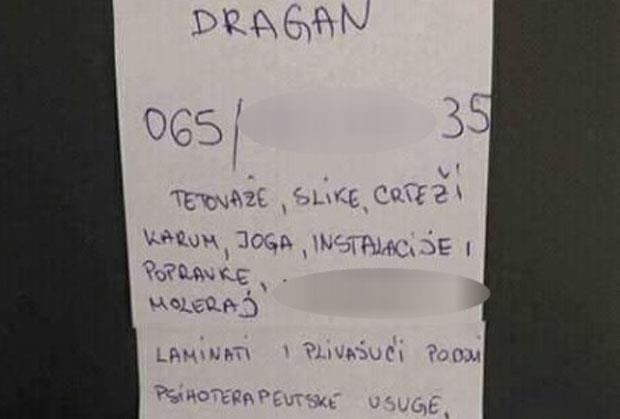 DRAGAN
065/ 35
TETOVAŽE, SLIKE, CRTEŽI
KARUM, JOGA, INSTALACIJE I
POPRAVKE,
MOLERAJ
LAMINATI I PLIVAJUĆI PODOVI
PSIHOTERAPEUTSKE USUGE,